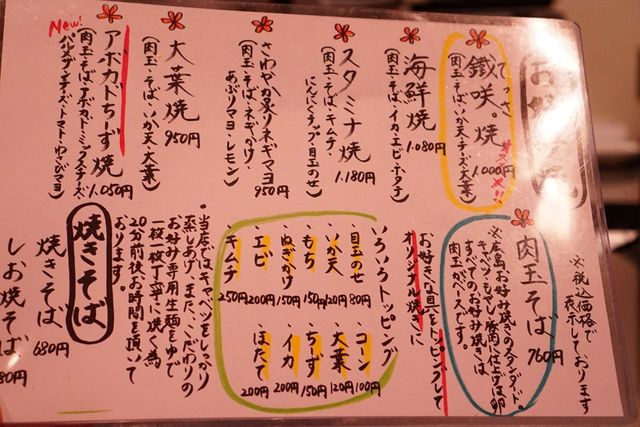 お好
てっさ
鐵咲。焼
オススメ!!
1.000円
(肉玉・そば、いか天・チーズ・大葉)
海鮮焼
1.080円
(肉玉・そば・イカ・エビ・ホタテ)
スタミナ焼
1.180円
(肉玉・そば・キムチ・
にんにくチップ・目玉のせ)
さわやか炙りネギマヨ
950円
(肉玉・そば・ネギかけ・
あぶりマヨ・レモン)
大葉焼
950円
(肉玉・そば・いか天・大葉)
New!
アボカドちーず焼
1.050円
(肉玉・そば・アボカド・ミックスチーズ・
パルメザンチーズ・トマト・わさびマヨ)
※税込価格で
表示しております
肉玉そば
760円
※広島お好み焼きのスタンダード。
キャベツ・もやし・豚肉・仕上げは卵
すべてのお好み焼きは、
肉玉がベースです。
お好きな具をトッピングして
オリジナル焼きに
いろいろトッピング
・目玉のせ 80円
・いか天 120円
・もち 150円
・ねぎかけ 150円
・エビ 200円
・キムチ 250円
・コーン 100円
・大葉 120円
・ちーず 150円
・イカ 200円
・ほたて 200円
。当店ではキャベツをしっかり
蒸しあげ、また、こだわりの
お好み専用生麺をゆで
一枚一枚丁寧に焼く為
20分前後、お時間を頂いて
おります。
焼きそば
焼きそば 680円
しお焼そば
80円